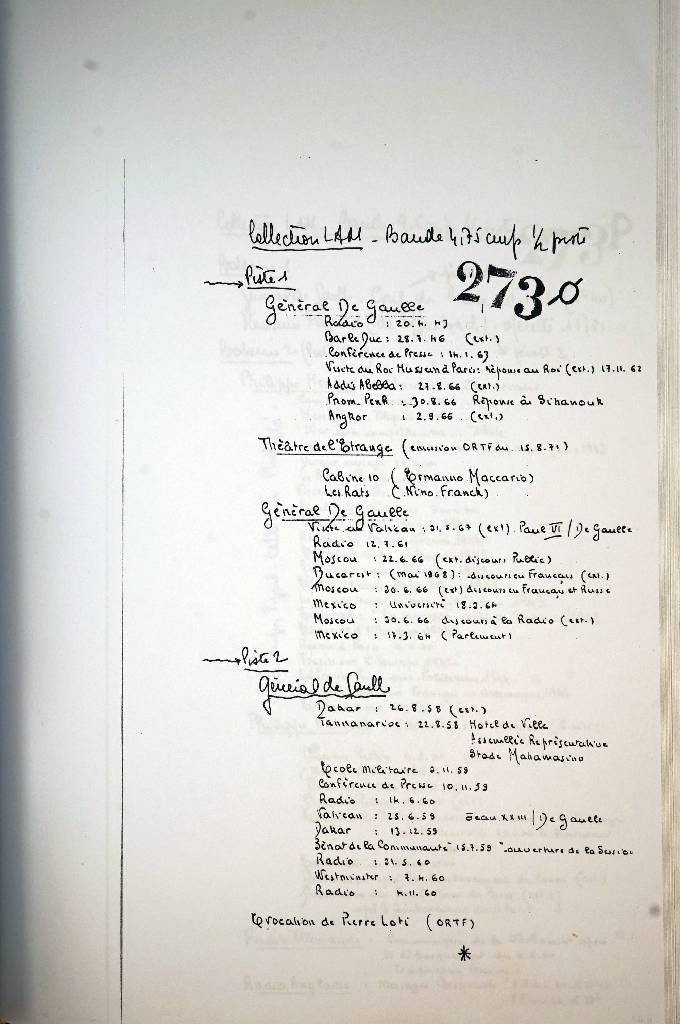 Collection LAM - Bande 4,75 cm/s ½ piste
273
Piste 1
Général De Gaulle
Radio : 20.4.43
Bar le Duc : 28.7.46 (ext.)
Conférence de Presse : 14.1.63
Visite du Roi Hussein à Paris : réponse au Roi (ext.) 17.11.62
Addis Abeba : 27.8.66 (ext.)
Pnom. Penh : 30.8.66 Réponse à Sihanouk
Angkor : 2.9.66 (ext.)
Théâtre de l'Etrange (emission ORTF du 15.8.71)
Cabine 10 (Ermanno Maccario)
Les Rats (Nino Franck)
Général De Gaulle
Visite au Vatican : 31.5.67 (ext) Paul VI / De Gaulle
Radio 12.7.61
Moscou : 22.6.66 (ext. discours Public)
Bucarest : (mai 1968) : discours en Français (ext.)
Moscou : 30.6.66 (ext) discours en Français et Russe
Mexico : Université 18.3.64
Moscou : 30.6.66 discours à la Radio (ext.)
Mexico : 17.3.64 (Parlement)
Piste 2
Général de Gaulle
Dakar : 26.8.58 (ext.)
Tannanarive : 22.8.58 Hotel de Ville
Assemblée Représentative
Stade Mahamasina
Ecole Militaire 3.11.59
Conférence de Presse 10.11.59
Radio : 14.6.60
Vatican : 25.6.59 Jean XXIII / De Gaulle
Dakar : 13.12.59
Sénat de la Communauté 15.7.59 ouverture de la Session
Radio : 31.5.60
Westminster : 7.4.60
Radio : 4.11.60
Evocation de Pierre Loti (ORTF)